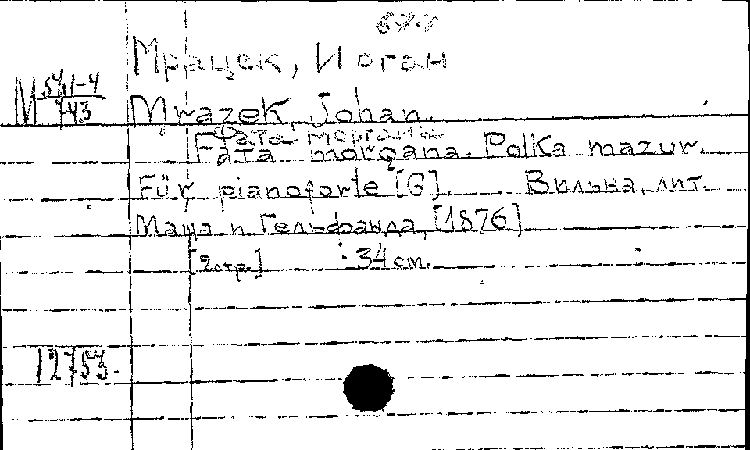 Мрацек, Иоган
М 541-4
743
Mrazek, Johan.
Фата моргана
Fata morgana. Polka mazur.
Für pianoforte [G]. Вильна, лит.
Маца и Гельфанда, [1876]
[2стр.] 34 см.
12753.